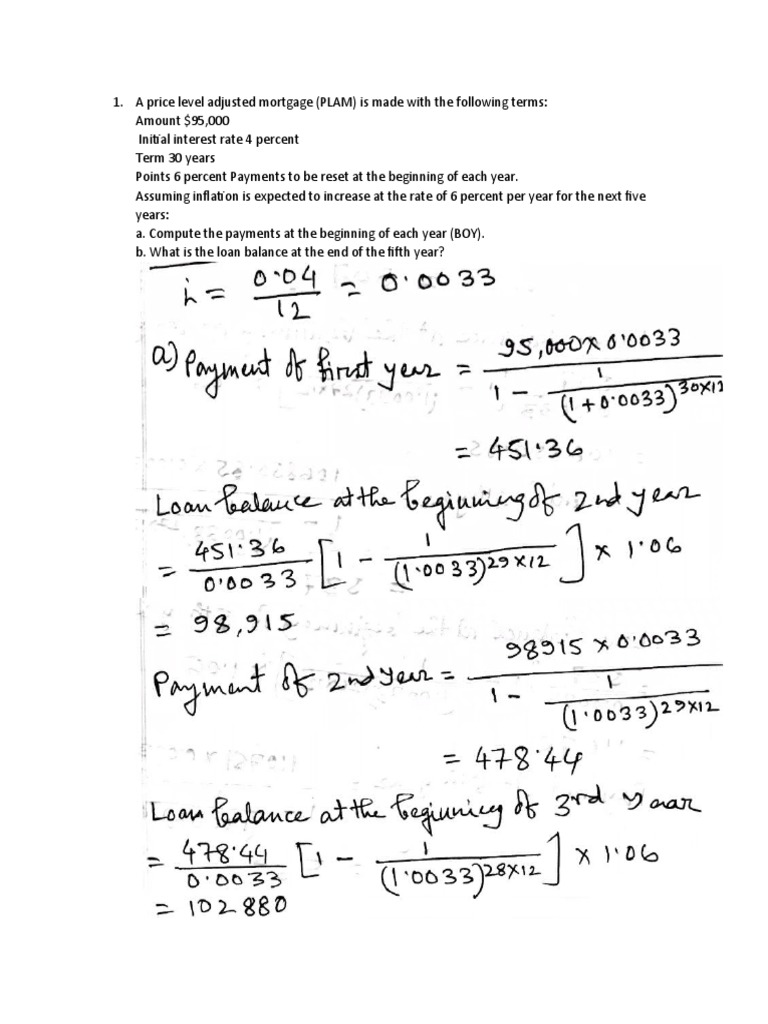 1. A price level adjusted mortgage (PLAM) is made with the following terms:
Amount $95,000
Initial interest rate 4 percent
Term 30 years
Points 6 percent Payments to be reset at the beginning of each year.
Assuming inflation is expected to increase at the rate of 6 percent per year for the next five
years:
a. Compute the payments at the beginning of each year (BOY).
b. What is the loan balance at the end of the fifth year?
i = 0.04 / 12 = 0.0033
a) Payment of first year = 95,000 × 0.0033 / 1 - 1 / (1+0.0033)^30×12
= 451.36
Loan balance at the beginning of 2nd year
= 451.36 / 0.0033 [1 - 1 / (1.0033)^29×12] × 1.06
= 98,915
Payment of 2nd year = 98915 × 0.0033 / 1 - 1 / (1.0033)^29×12
= 478.44
Loan balance at the beginning of 3rd year
= 478.44 / 0.0033 [1 - 1 / (1.0033)^28×12] × 1.06
= 102880